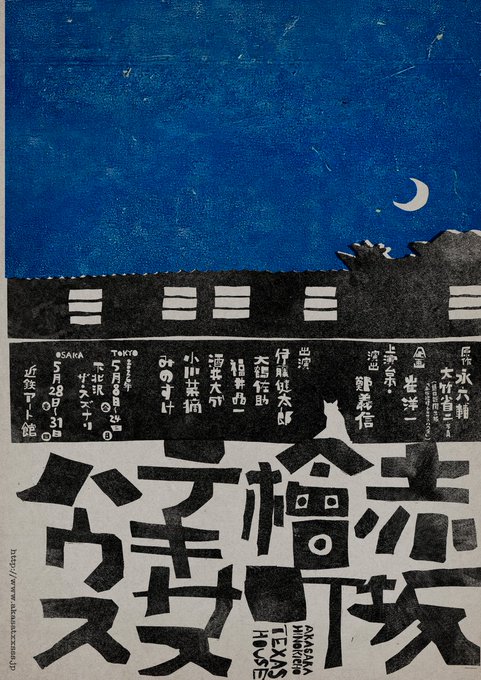 原作
永六輔
大竹省二
企画
崔洋一
演出
鄭義信
出演
伊藤健太郎
大鶴佐助
福井晶一
酒井大成
小川菜摘
みのすけ
TOKYO
2026年
5月8日㊎〜24日㊐
下北沢
ザ・スズナリ
OSAKA
5月28日㊍〜31日㊐
近鉄アート館
赤坂
檜町
テキサス
ハウス
AKASAKA
HINOKICHO
TEXAS
HOUSE
http://www.akasatxxsss.jp